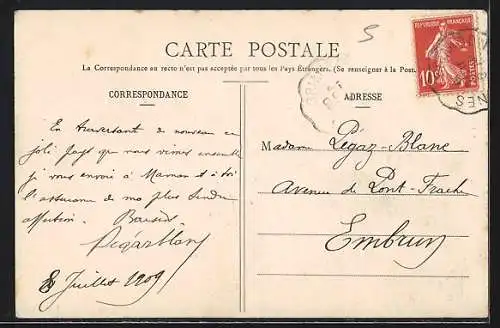 CARTE POSTALE
La Correspondance au recto n'est pas acceptée par tous les Pays Étrangers. (Se renseigner à la Post
CORRESPONDANCE
ADRESSE
5
RÉPUBLIQUE FRANÇAISE
10c
POSTES
En traversant de nouveau ce
joli pays que vous aimez ensemble
je vous envoie à Maman et à toi
l'assurance de ma plus tendre
affection. Baisers
Pégaz Blanc
8 Juillet 1909
Madame Pégaz-Blanc
Avenue du Pont-Frache
Embrun